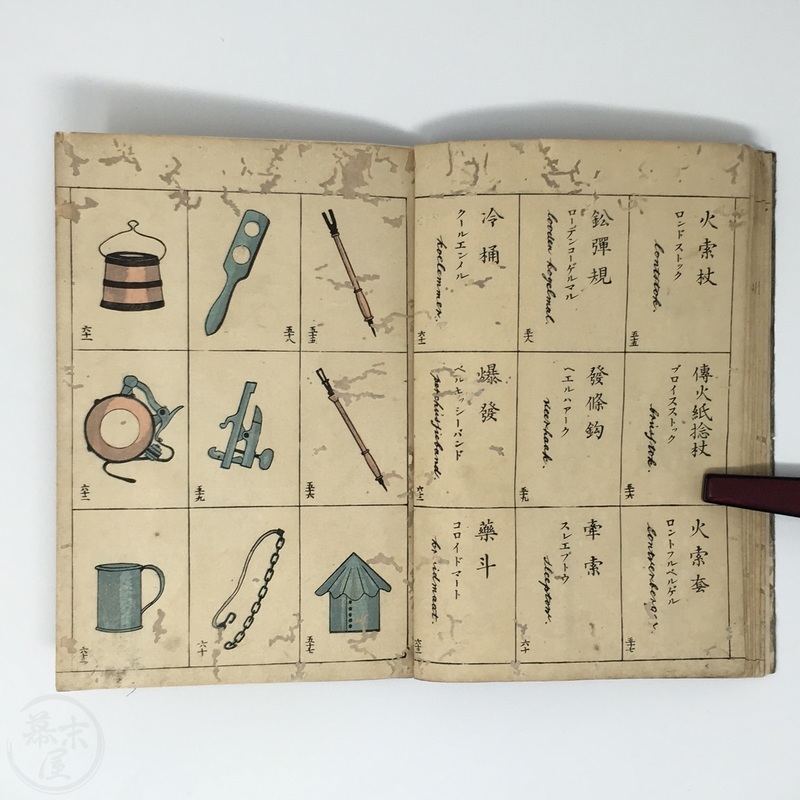 火索杖
ロンドストック
lontstok.
五十五
傳火紙捻杖
ブロイスストック
五十六
火索套
ロントフルベルゲル
lontverberger.
五十七
鈆彈規
ローデンコーゲルマル
looden kogelmal.
五十八
發條鈎
ヘエルハアーク
veerhaak.
五十九
牽索
スレエプトウ
sleeptow.
六十
冷桶
クールエンメル
koelemmer.
六十一
爆發
ペルキュッシーバンド
六十二
藥斗
コロイドマート
六十三
五十五
五十六
五十七
五十八
五十九
六十
六十一
六十二
六十三
幕末屋